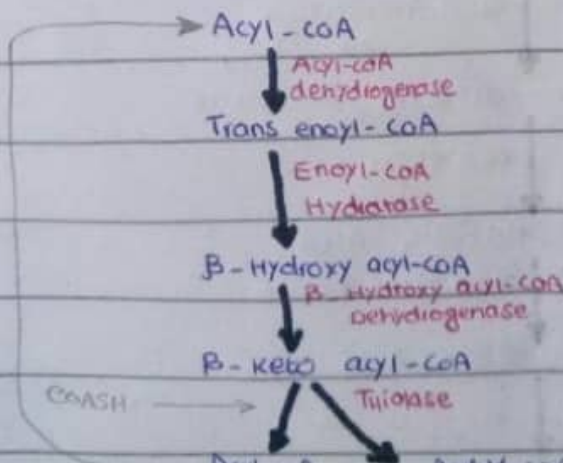 Acyl-CoA
Acyl-CoA
dehydrogenase
Trans enoyl-CoA
Enoyl-CoA
Hydratase
β-Hydroxy acyl-CoA
β-Hydroxy acyl-CoA
Dehydrogenase
β-Keto acyl-CoA
CoASH
Thiolase